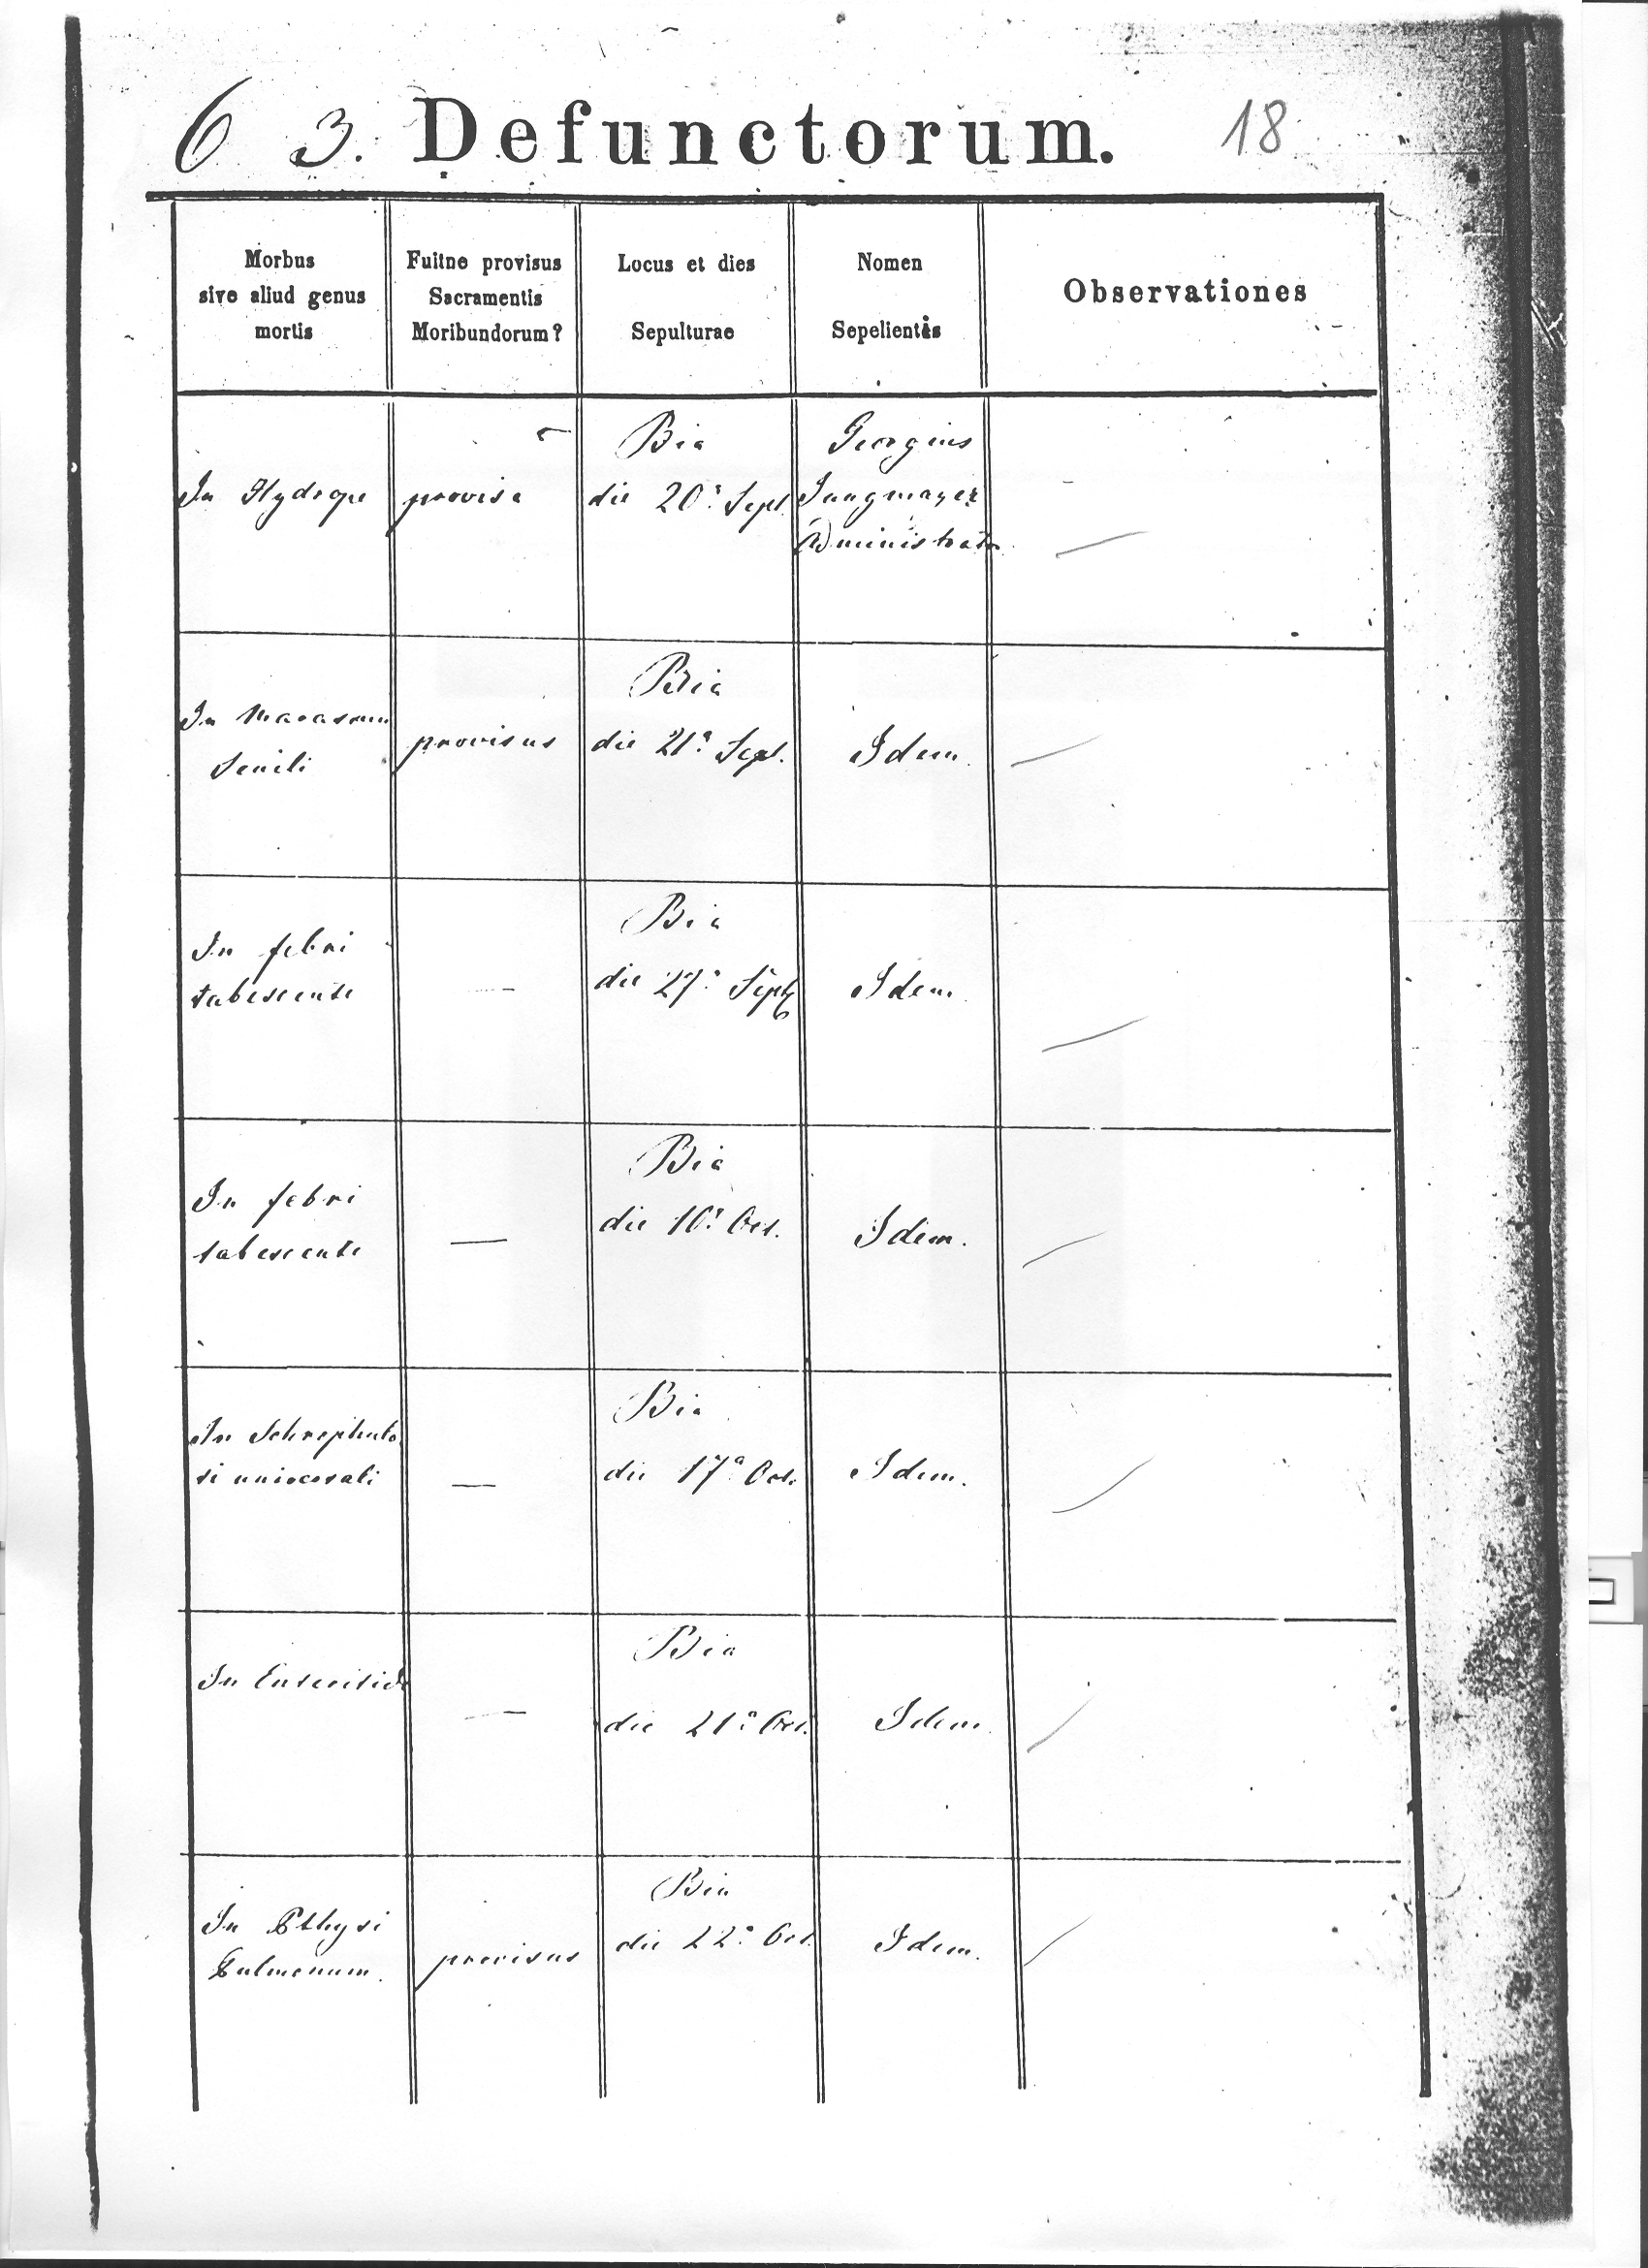 6 3. Defunctorum. 18
Morbus
sive aliud genus
mortis
Fuitne provisus
Sacramentis
Moribundorum?
Locus et dies
Sepulturae
Nomen
Sepelientis
Observationes
In Hydrope
provisa
Bia
die 20a Sept.
Georgius
Jungmayer
Administrator
In Marasmu
Senili
provisus
Bia
die 21a Sept.
Idem.
In febri
tabescente
—
Bia
die 27a Sept.
Idem.
In febri
tabescente
—
Bia
die 10a Oct.
Idem.
In
—
Bia
die 17a Oct.
Idem.
In Enteritide
—
Bia
die 21a Oct.
Idem.
In Pthysi
Pulmonum.
provisus
Bia
die 22a Oct.
Idem.